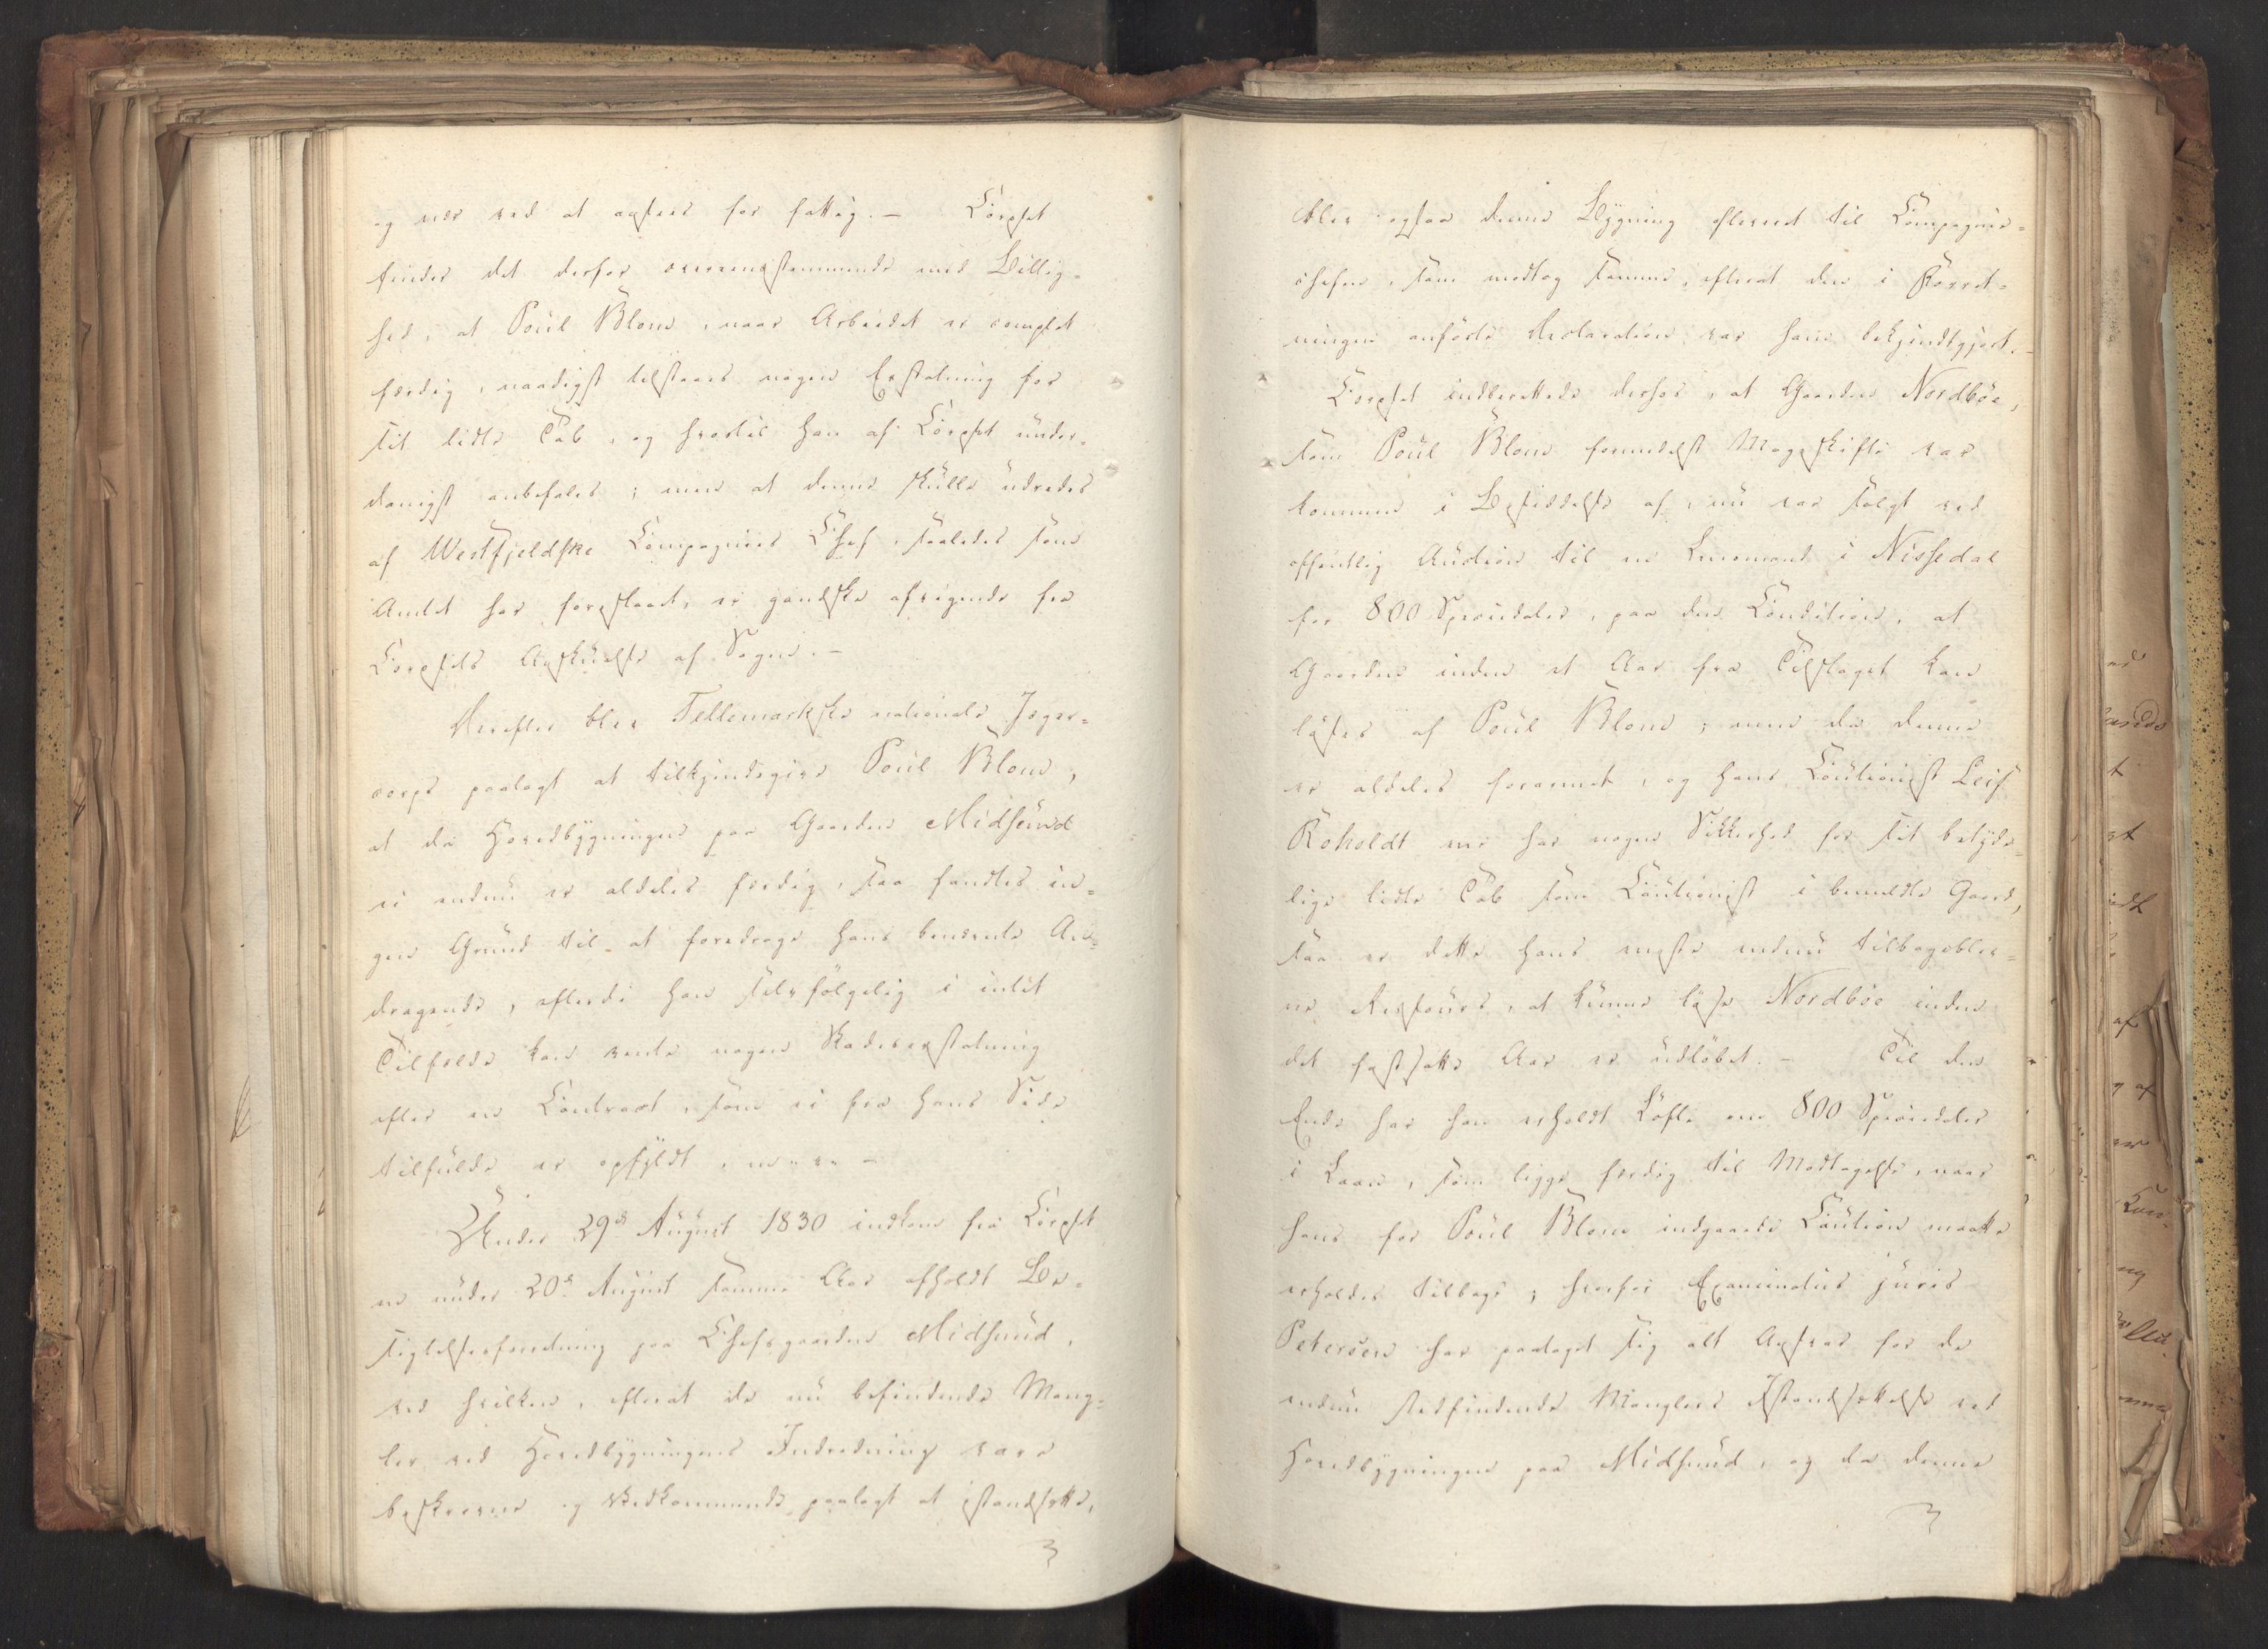 og nær ved at ansees for fattig. – Corpset
finder det derfor overeensstemmende med Billig-
hed, at Poul Blom, naar Arbeidet er complet
færdig, naadigst tilstaaes nogen Erstatning for
sit lidte Tab, og hvortil han af Corpset under-
danigst anbefales; men at denne skulle udredes
af Westfjeldske Compagnies Chef, saaledes som
Amtet har foreslaaet, er gandske afvigende fra
Corpsets Anskuelse af Sagen. –
Derefter blev Tellemarkske nationale Jæger-
corps paalagt at tilkjendegive Poul Blom,
at da Hovedbygningen paa Gaarden Midsund
ei endnu er aldeles færdig, saa fandtes in-
gen Grund til at foredrage hans benævnte An-
dragende, efterdi han selvfølgelig i intet
Tilfælde kan vente nogen Skadeserstatning
efter en Contract, som ei fra hans Side
tilfulde er opfyldt,
Under 29de August 1830 indkom fra Corpset
en under 20de August samme Aar afholdt Be-
sigtelsesforretning paa Chefsgaarden Midsund,
ved hvilken, efterat de nu befindende Mang-
ler ved Hovedbygningens Indredning vare
beskrevne og Vedkommende paalagt at istandsætte,
blev ogsaa denne Bygning afleveret til Compagnie-
chefen, som modtog samme, efterat den i Forret-
ningen anførte Declaration var ham bekjendtgjort. –
Corpset indberettede derhos, at Gaarden Nordbøe,
som Poul Blom formedelst Mageskifte var
kommen i Besiddelse af, nu var solgt ved
offentlig Auction til en Lensmand i Nissedal
for 800 Speciedaler, paa den Condition, at
Gaarden inden et Aar fra Tilslaget kan
løses af Poul Blom; men da denne
er aldeles forarmet, og hans Cautionist Leif
Roholdt nu har nogen Sikkerhed for sit betyde-
lige lidte Tab som Cautionist i bemeldte Gaard,
saa er dette hans eneste endnu tilbageblev-
ne Ressource, at kunne løse Nordbøe inden
det fastsatte Aar er udløbet. – Til den
Ende har han erholdt Løfte om 800 Speciedaler
i Laan, som ligge færdig til Modtagelse, naar
hans for Poul Blom indgaaede Caution maatte
erholdes tilbage; hvorfor Examinatus juris
Petersen har paataget sig alt Ansvar for de
endnu stedfindende Manglers Istandsættelse ved
Hovedbygningen paa Midsund, og da denne